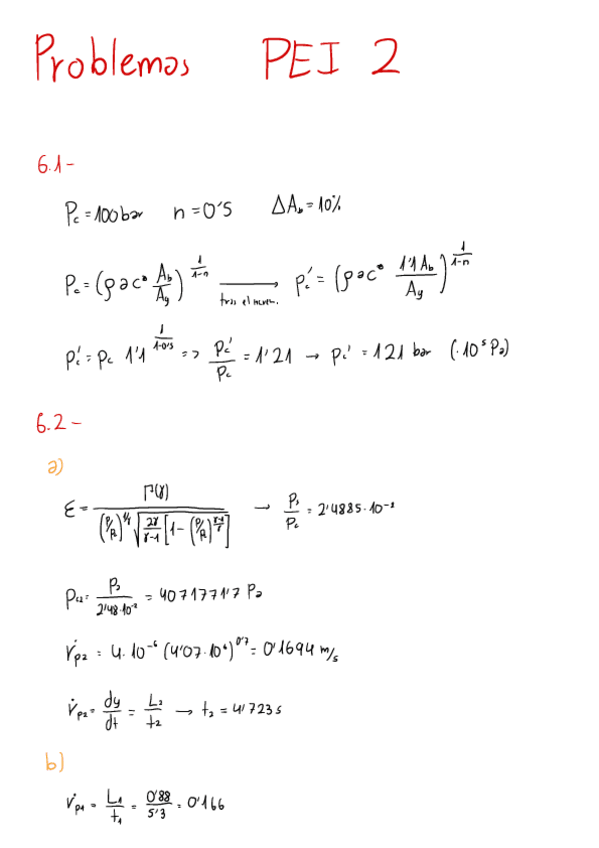 Problemas PEI 2
6.1-
Pc = 100 bar n = 0'5 ΔAb = 10%
Pc = (ρ a c* Ab/Ag)^(1/(1-n)) → tras el increm. Pc' = (ρ a c* 1'1 Ab/Ag)^(1/(1-n))
Pc' = Pc 1'1^(1/(1-0'5)) => Pc'/Pc = 1'21 → Pc' = 121 bar (·10^5 Pa)
6.2-
a)
ε = Γ(γ) / ((Ps/Pc)^(1/γ) √(2γ/(γ-1) [1 - (Ps/Pc)^((γ-1)/γ)])) → Ps/Pc = 2'4885·10^-2
Pc2 = Ps/2'48·10^-2 = 4071771'7 Pa
ṙp2 = 4·10^-6 (4'07·10^6)^0'7 = 0'1694 m/s
ṙp2 = dy/dt = L2/t2 → t2 = 4'723 s
b)
ṙp1 = L1/t1 = 0'88/5'3 = 0'166